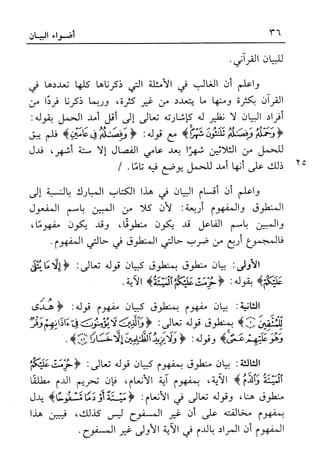 ٣٦ أضواء البيان
للبيان القرآني.
واعلم أن الغالب في الأمثلة التي ذكرناها كلها تعددها في
القرآن بكثرة ومنها ما يتعدد من غير كثرة، وربما ذكرنا فردًا من
أفراد البيان لا نظير له كإشارته تعالى إلى أقل أمد الحمل بقوله:
﴿وَحَمْلُهُ وَفِصَالُهُ ثَلَاثُونَ شَهْرًا﴾ مع قوله: ﴿وَفِصَالُهُ فِي عَامَيْنِ﴾ فلم يبق
للحمل من الثلاثين شهرًا بعد عامي الفصال إلا ستة أشهر، فدل
٢٥ ذلك على أنها أمد للحمل يوضع فيه تامًا. /
واعلم أن أقسام البيان في هذا الكتاب المبارك بالنسبة إلى
المنطوق والمفهوم أربعة: لأن كلا من المبين باسم المفعول
والمبين باسم الفاعل قد يكون منطوقًا، وقد يكون مفهومًا،
فالمجموع أربع من ضرب حالتي المنطوق في حالتي المفهوم.
الأولى: بيان منطوق بمنطوق كبيان قوله تعالى: ﴿إِلَّا مَا يُتْلَى
عَلَيْكُمْ﴾ بقوله: ﴿حُرِّمَتْ عَلَيْكُمُ الْمَيْتَةُ﴾ الآية.
الثانية: بيان مفهوم بمنطوق كبيان مفهوم قوله: ﴿هُدًى
لِلْمُتَّقِينَ ۝﴾ بمنطوق قوله تعالى: ﴿وَالَّذِينَ لَا يُؤْمِنُونَ فِي آذَانِهِمْ وَقْرٌ
وَهُوَ عَلَيْهِمْ عَمًى﴾ وقوله: ﴿وَلَا يَزِيدُ الظَّالِمِينَ إِلَّا خَسَارًا ۝﴾.
الثالثة: بيان منطوق بمفهوم كبيان قوله تعالى: ﴿حُرِّمَتْ عَلَيْكُمُ
الْمَيْتَةُ وَالدَّمُ﴾ الآية، بمفهوم آية الأنعام، فإن تحريم الدم مطلقًا
منطوق هنا، وقوله تعالى في الأنعام: ﴿مَيْتَةً أَوْ دَمًا مَسْفُوحًا﴾ يدل
بمفهوم مخالفته على أن غير المسفوح ليس كذلك، فيبين هذا
المفهوم أن المراد بالدم في الآية الأولى غير المسفوح.